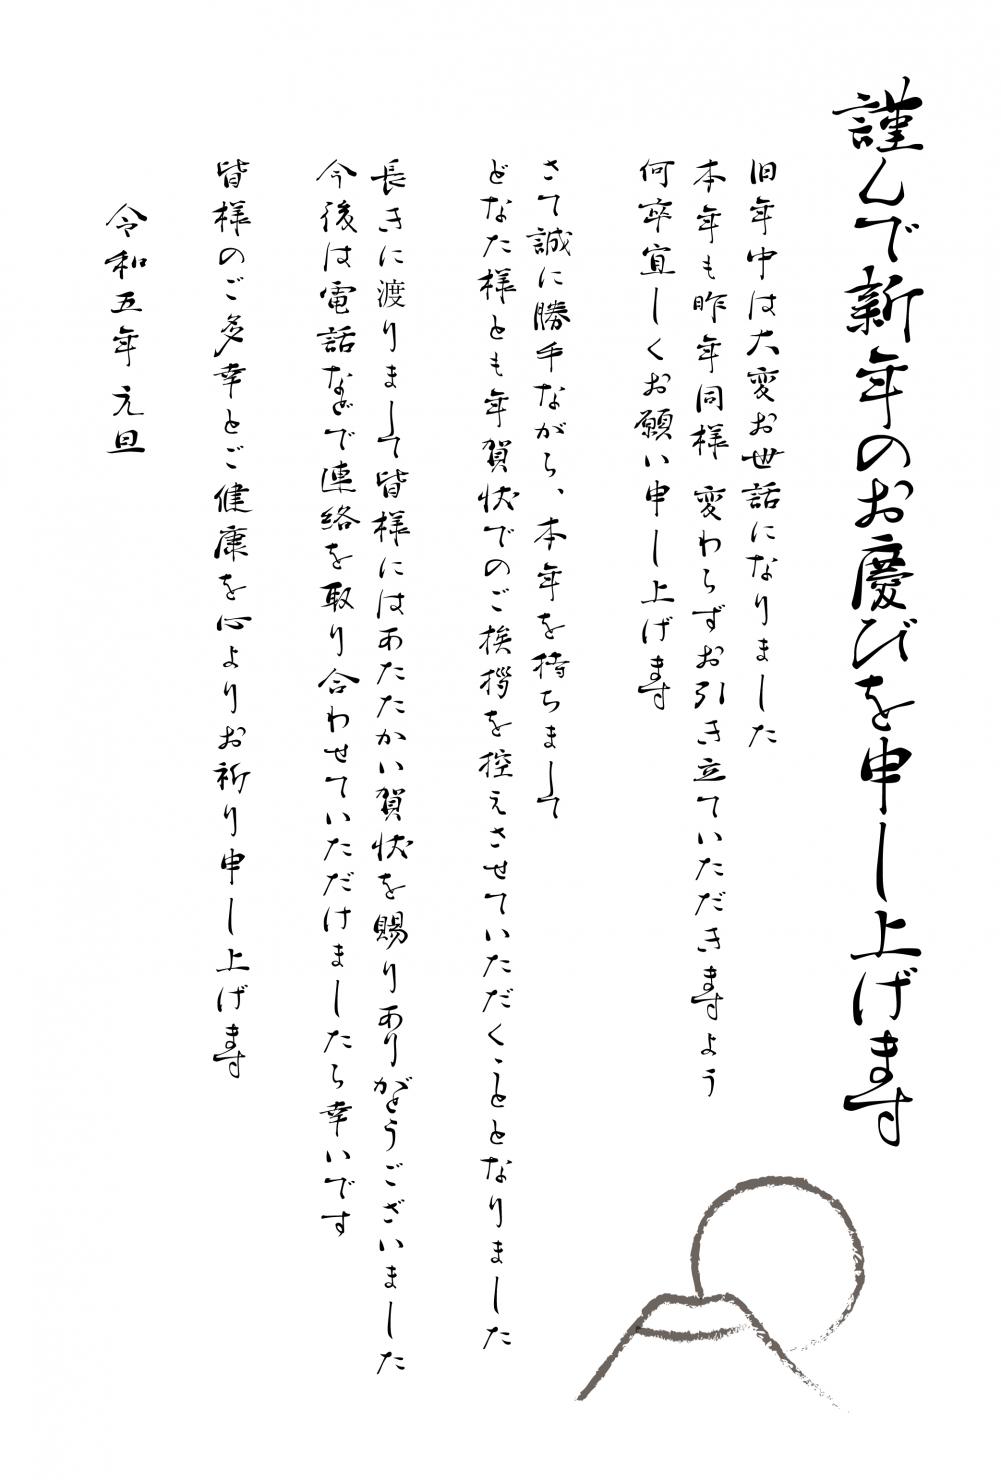 謹んで新年のお慶びを申し上げます
旧年中は大変お世話になりました
本年も昨年同様 変わらずお引き立ていただきますよう
何卒宜しくお願い申し上げます
さて誠に勝手ながら、本年を持ちまして
どなた様とも年賀状でのご挨拶を控えさせていただくこととなりました
長きに渡りまして皆様にはあたたかい賀状を賜りありがとうございました
今後は電話などで連絡を取り合わせていただけましたら幸いです
皆様のご多幸とご健康を心よりお祈り申し上げます
令和五年元旦